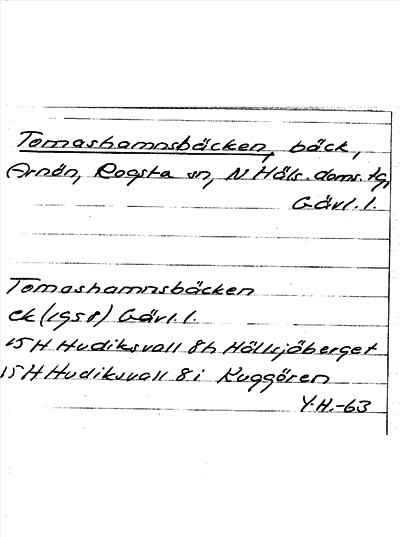 Tomashamnsbäcken, bäck,
Arnön, Rogsta sn, N Häls. doms. tg,
Gävl. l.
Tomashamnsbäcken
ek (1958) Gävl. l.
15 H Hudiksvall 8h Hällsjöberget
15 H Hudiksvall 8i Kuggören
Y.H.-63